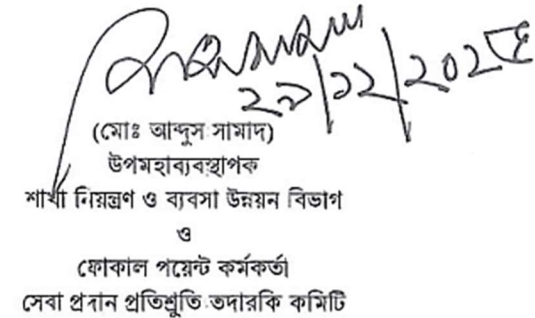 ২৯/১২/২০২৫
(মোঃ আব্দুস সামাদ)
উপমহাব্যবস্থাপক
শাখা নিয়ন্ত্রণ ও ব্যবসা উন্নয়ন বিভাগ
ও
ফোকাল পয়েন্ট কর্মকর্তা
সেবা প্রদান প্রতিশ্রুতি তদারকি কমিটি